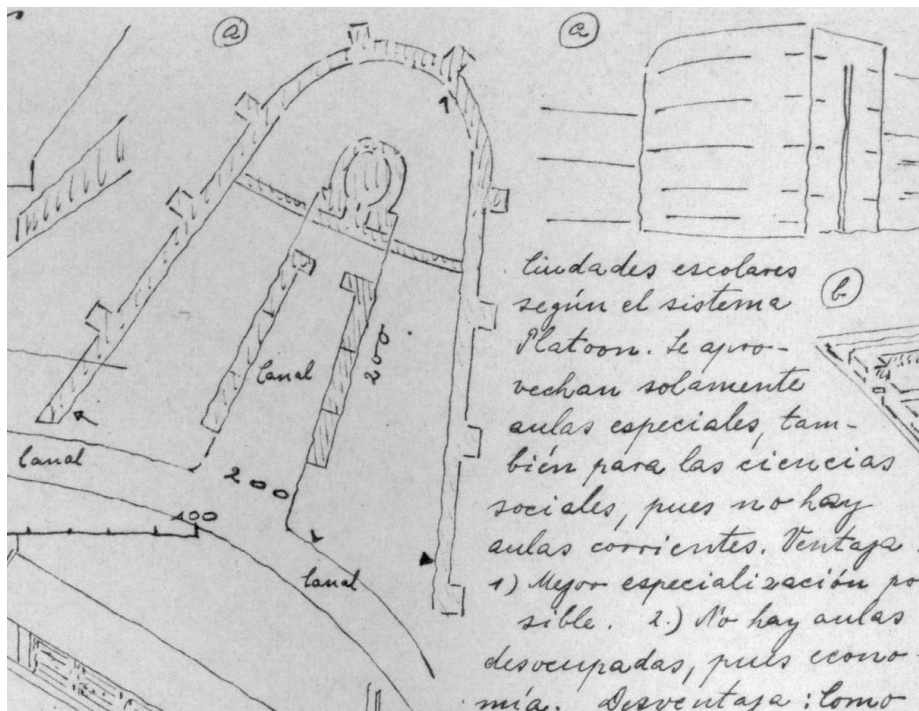 a
a
1
Canal
200
200
Canal
100
Canal
b
Ciudades escolares
según el sistema
Platoon. Se apro-
vechan solamente
aulas especiales, tam-
bién para las ciencias
sociales, pues no hay
aulas corrientes. Ventaja:
1) Mejor especialización po
sible. 2.) No hay aulas
desocupadas, pues econo-
mía. Desventaja: Como